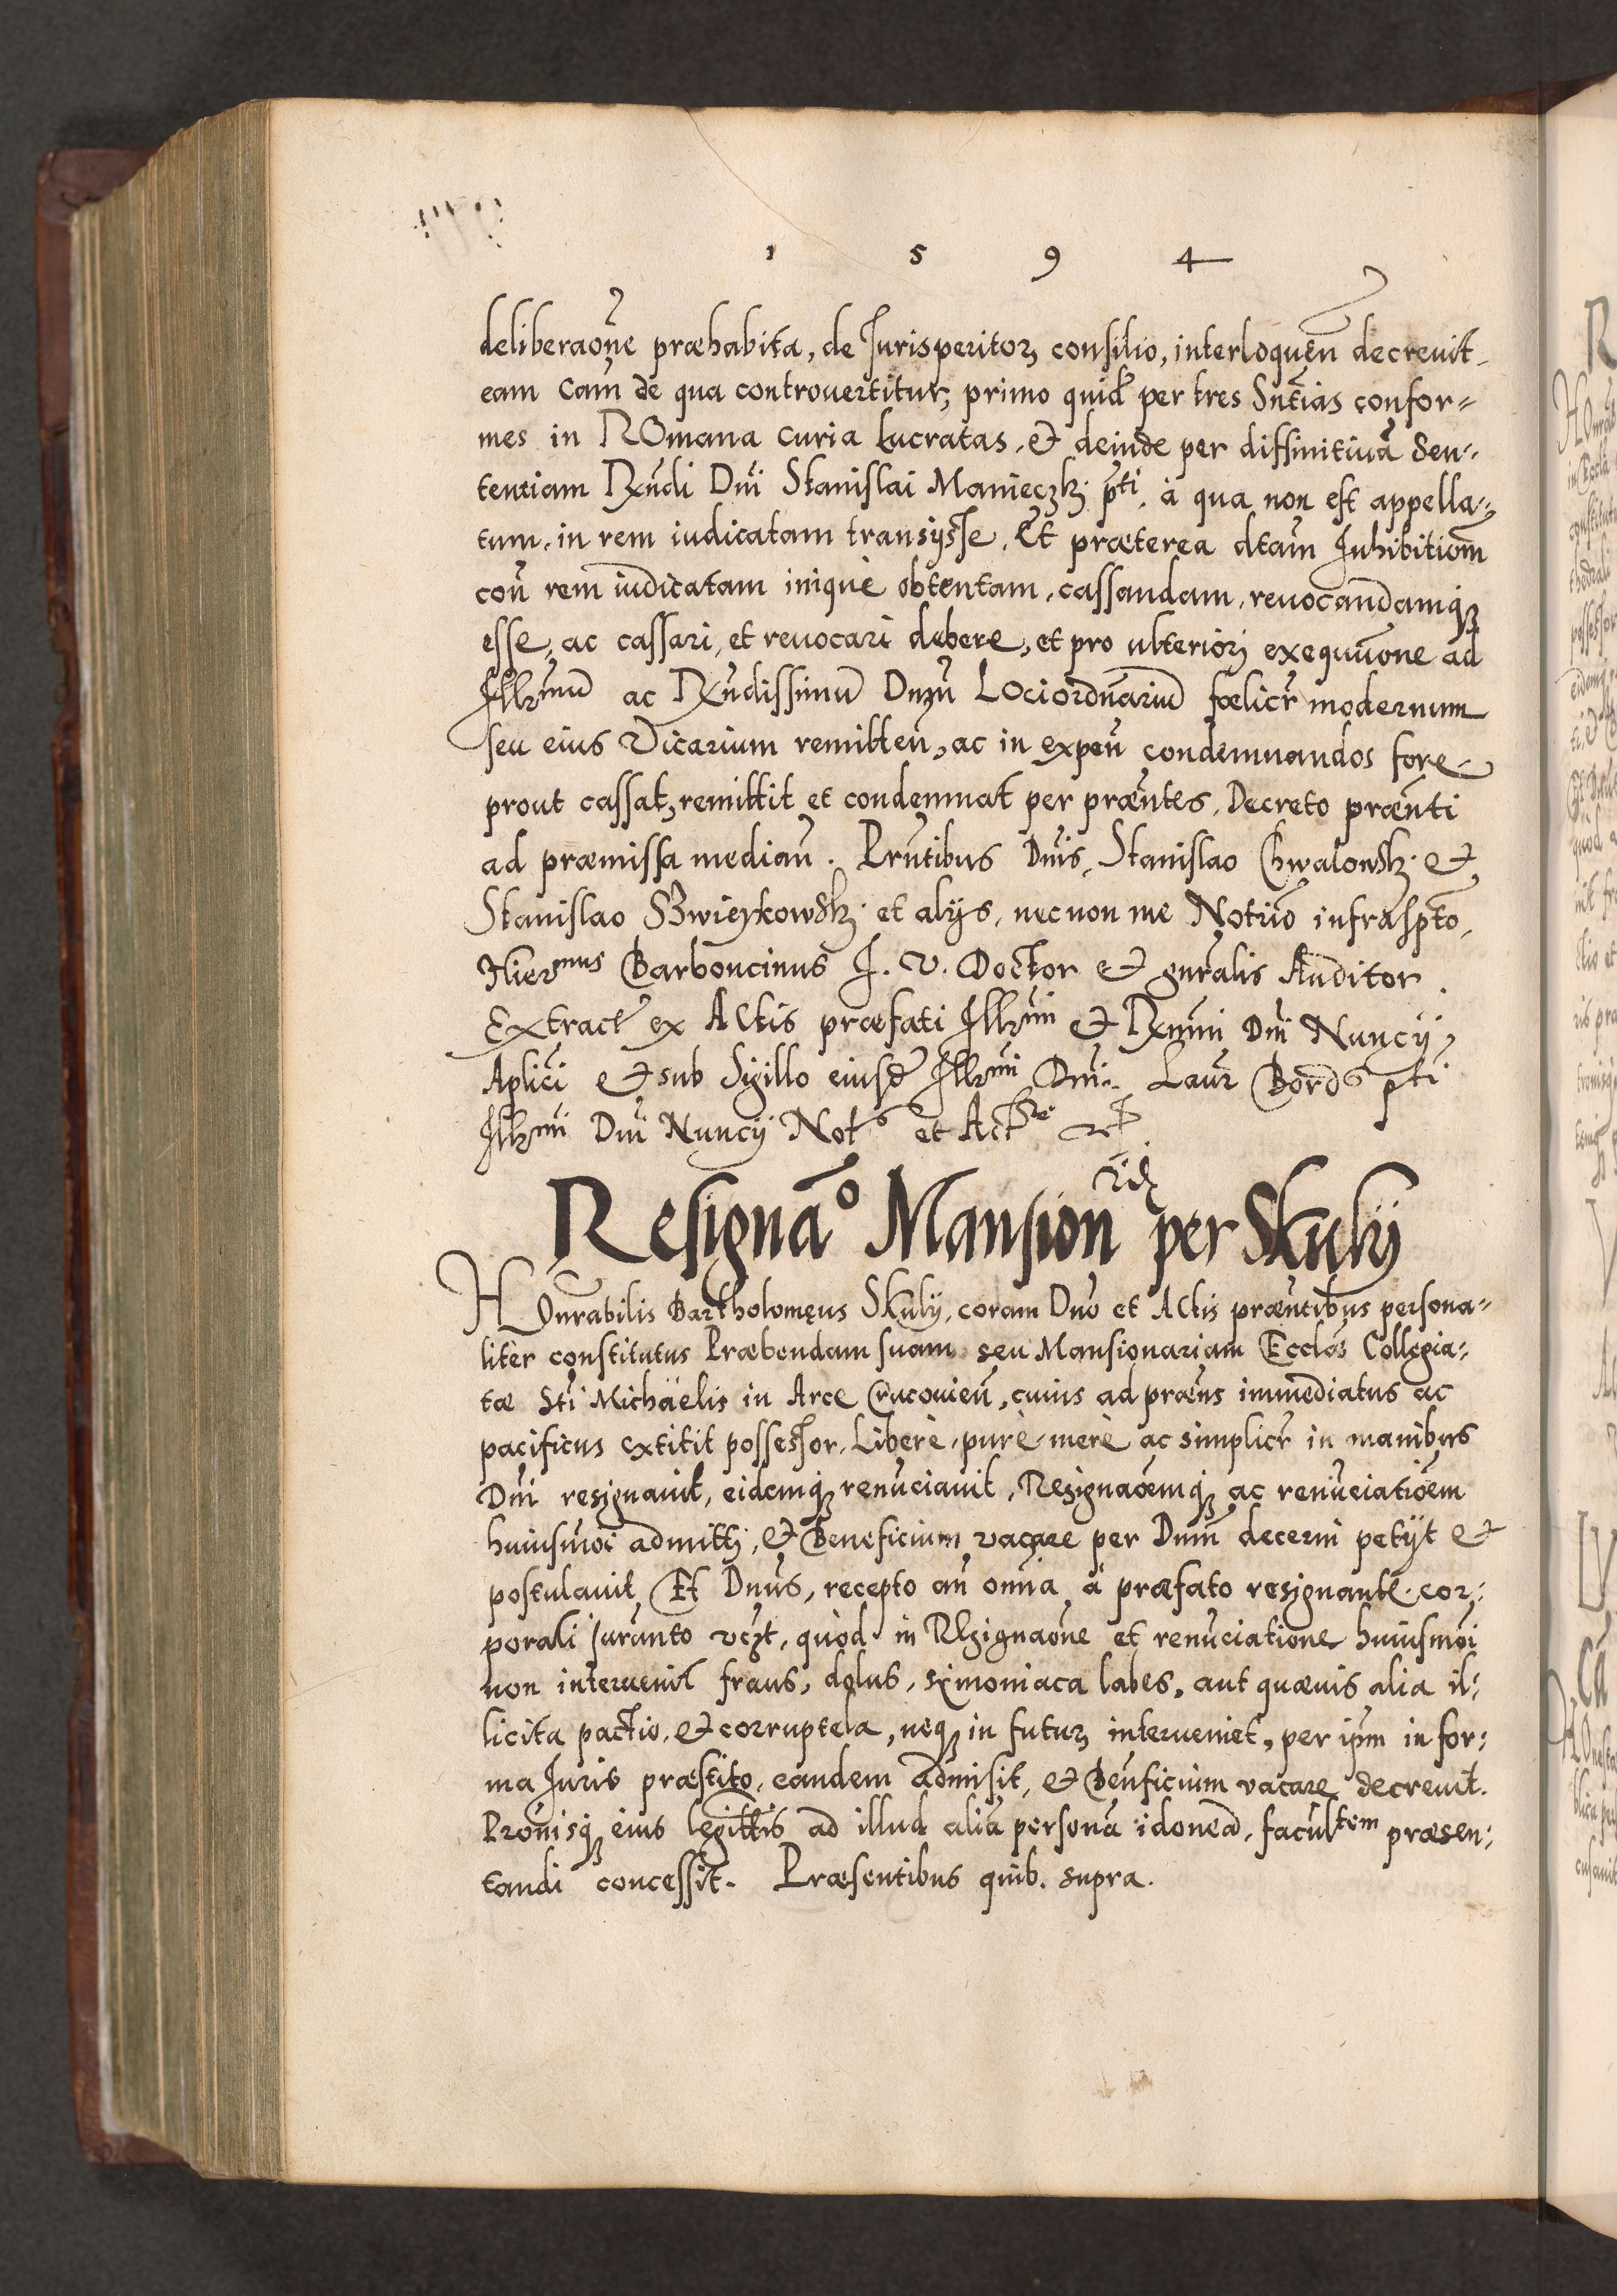 1 5 9 4
deliberaoñe præhabita, de Jurisperitoꝝ consilio, interloqueñ decreuit
eam Cam̃ de qua controuertitur, primo quid̃ per tres Sñtias confor=
mes in ROmana Curia Lucratas, et deinde per diffinitiuã Sen=
tentiam Rx̃ndi Dñi Stanislai Manieczk: p̃ti. à qua non est appella=
tum, in rem iudicatam transijsse, Et præterea dtam̃ Inhibitiom̃
coñ rem iudicatam iniquè obtentam, cassandam, reuocandamqȝ
esse, ac cassari, et reuocari debere, et pro ulteriori exequuõne ad
Illr̃mũ ac Rx̃ndissimũ Dnm̃ LOciordñarium fœlicr̃ modernum
seu eius Vicarium remitteñ, ac in expeñ condemnandos fore
prout cassat, remittit et condemnat per præñtes, Decreto præñti
ad præmissa mediañ. Prñtibus Dñis, Stanislao Chwalowsk: et
Stanislao SZwieykowsk: et alijs, necnon me Notrio infrasp̃to,
Hierᵐⁿᵘˢ Barboncinus J. V. Doctor et gñralis Auditor.
Extract̃ ex ACtis præfati Illr̃mi et Rx̃mi Dñi Nuncij
Aplici et sub Sigillo eiusd̃ Illr̃mi Dñi. Laur̃ Bord⁹ p̃ti
Illr̃mi Dñi Nuncij Not⁹ et Act
Resignaõ Mansioñ per Skulij
HOnrabilis Bartholomęus Skulij, coram Dño et ACtis præñtibus persona=
liter constitutus Præbendam suam seu Mansionariam Eccłæ Collegia=
tæ Sti Michäelis in Arce Cracouieñ, cuius ad præñs immediatus ac
pacificus extitit possessor, Liberè, purè, merè ac simplicr̃ in manibus
Dñi resignauit, eidemqȝ renũciauit, Resignaõemqȝ ac renũciatiõem
huiusmõi admitti, et Beneficium vacare per Dnm̃ decerni petijt et
postulauit, Et Dnũs, recepto añ omĩa à præfato resignante cor=
porali Jurãnto vcz̃t, quòd in REsignaõne et renũciatione huiusmõi
non interuenit fraus, dolus, symoniaca labes, aut quæuis alia il=
licita pactio, et corruptela, neqȝ in futuꝝ interueniet, per ipm̃ in for=
ma Juris præstito, eandem admisit, et Beñficium vacare decreuit.
Prõnisqȝ eius legittis̃ ad illud aliã personã idoneã, facultᵉᵐ præsen=
tandi concessit. Præsentibus quib. supra.